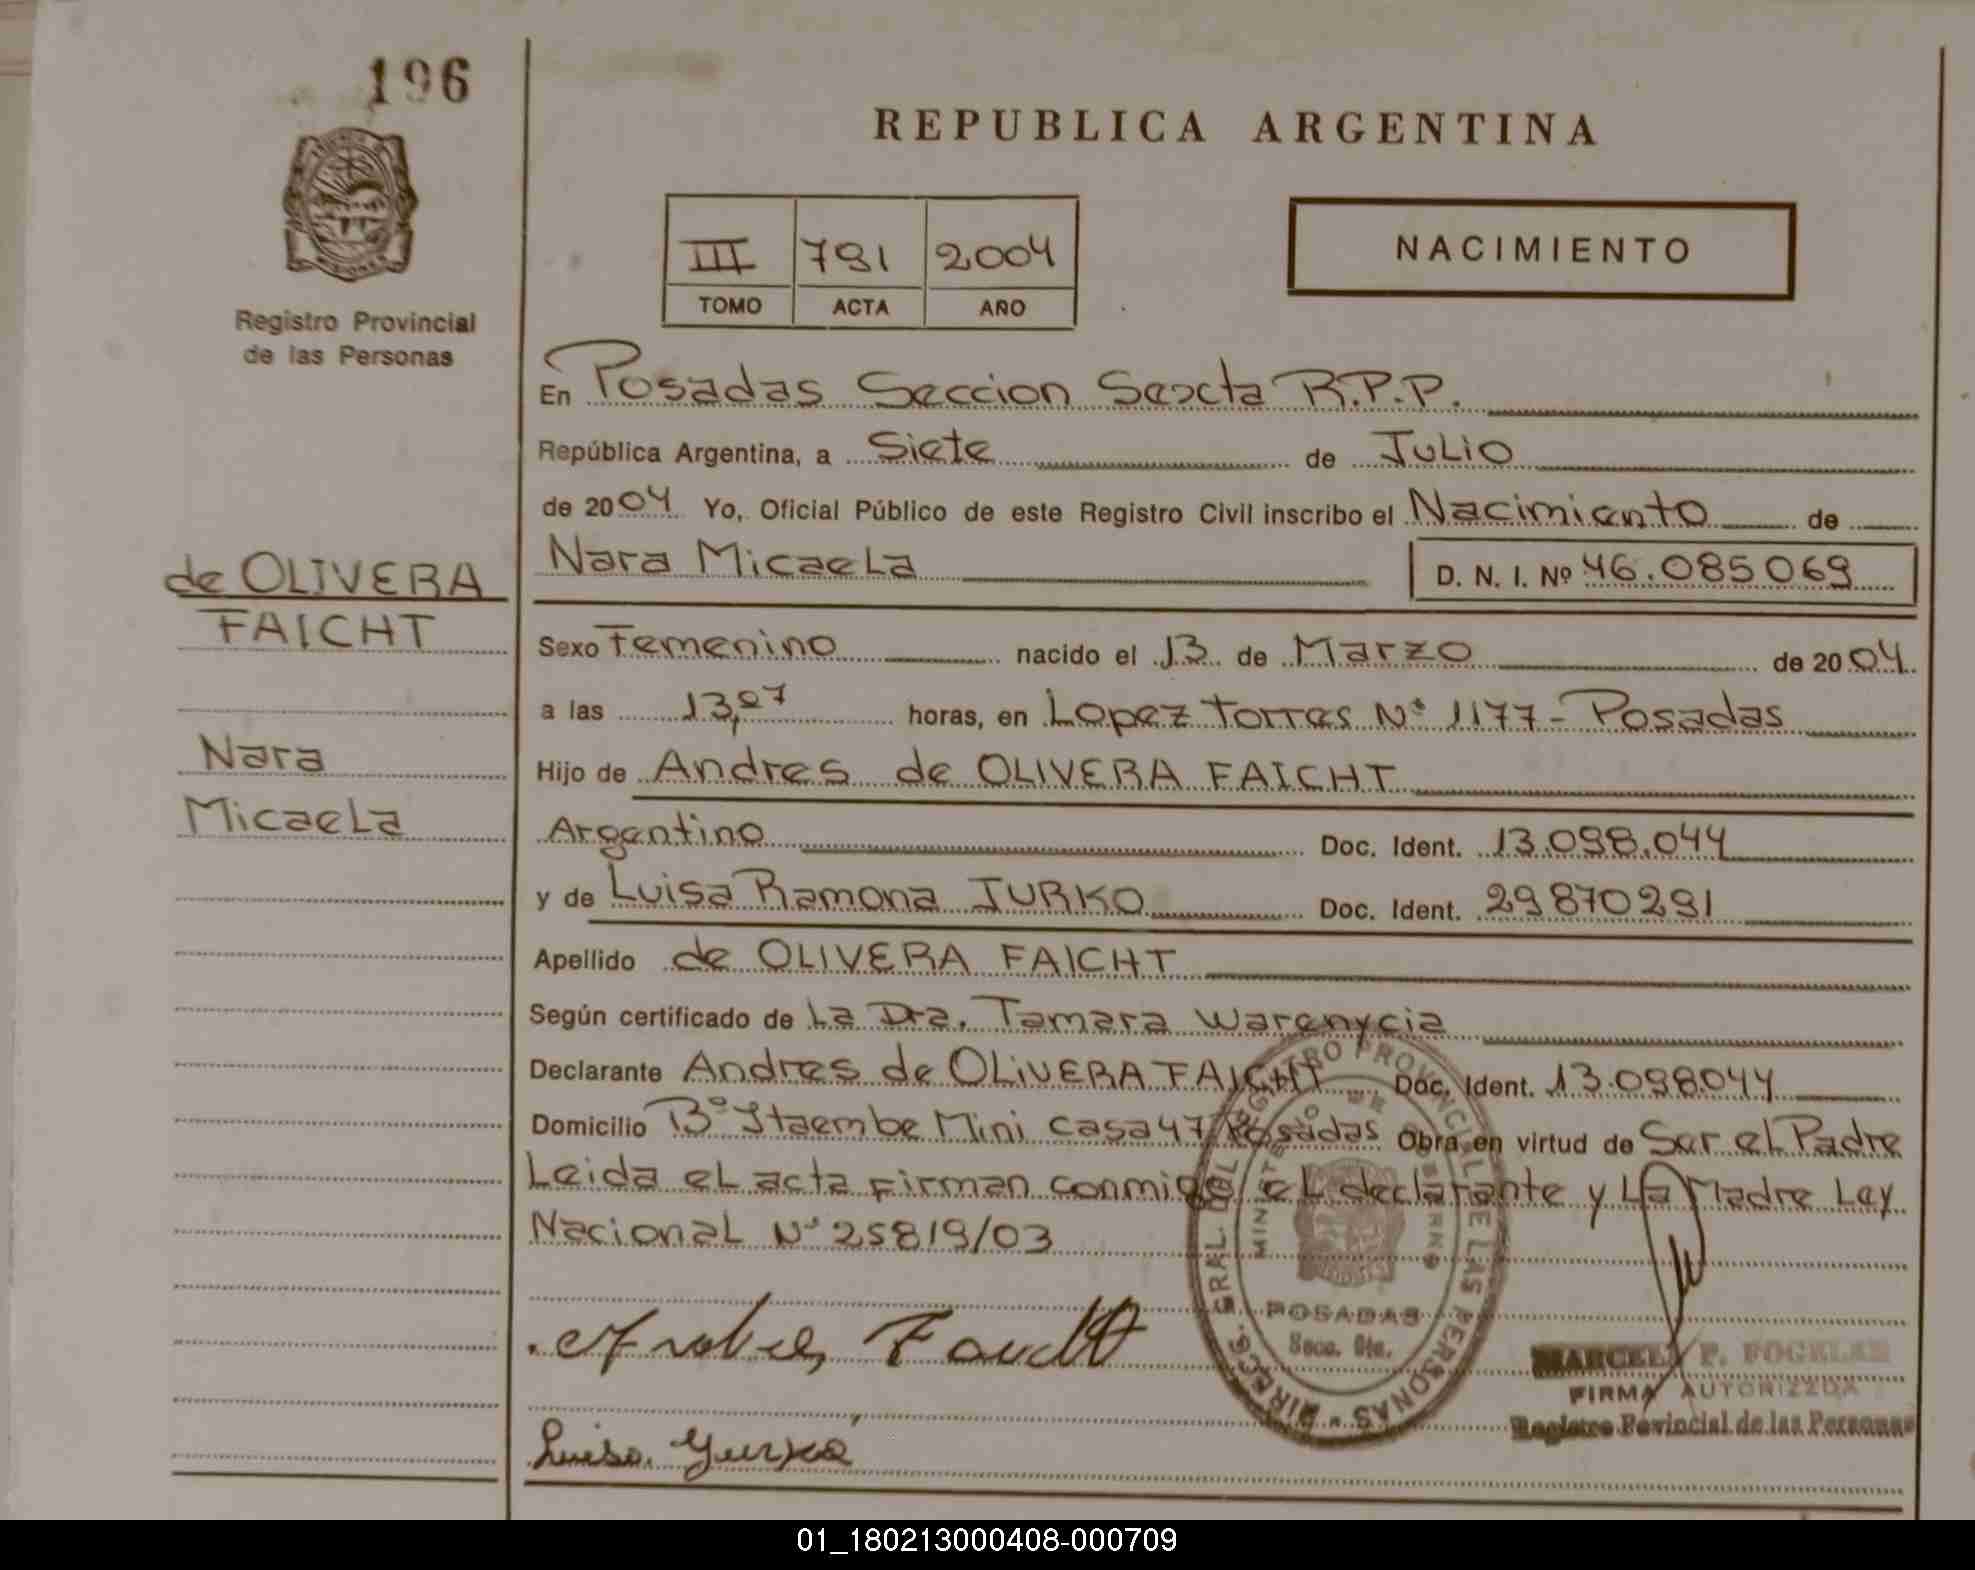 196
REPUBLICA ARGENTINA
III 791 2004
TOMO ACTA AÑO
NACIMIENTO
Registro Provincial
de las Personas
de OLIVERA
FAICHT
Nara
Micaela
En Posadas Seccion Sexta R.P.P.
República Argentina, a Siete de Julio
de 2004 Yo, Oficial Público de este Registro Civil inscribo el Nacimiento de
Nara Micaela D. N. I. Nº 46.085069
Sexo Femenino nacido el 13 de Marzo de 2004
a las 13,07 horas, en Lopez Torres Nº 1177 - Posadas
Hijo de Andres de OLIVERA FAICHT
Argentino Doc. Ident. 13.098.044
y de Luisa Ramona JURKO Doc. Ident. 29870291
Apellido de OLIVERA FAICHT
Según certificado de La Dra. Tamara Warenycia
Declarante Andres de OLIVERA FAICHT Doc. Ident. 13.098044
Domicilio Bº Itaembe Mini casa 47 Posadas Obra en virtud de Ser el Padre
Leida el acta firman conmigo el declarante y La Madre Ley
Nacional Nº 25819/03
REGISTRO PROVINCIAL DE LAS PERSONAS
POSADAS
Secc. 6ta.
Luisa Yurko
FIRMA AUTORIZZDA
Registro Povincial de las Personas
01_180213000408-000709